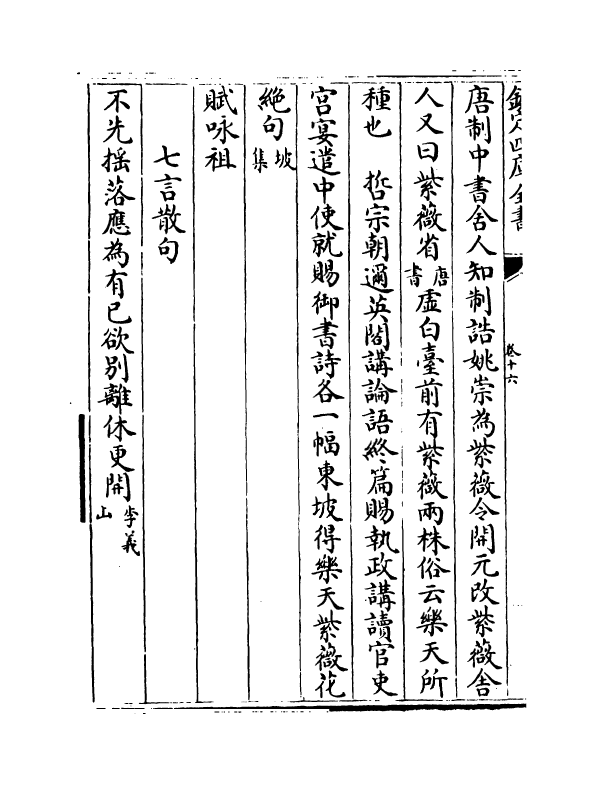 欽定四庫全書
卷十六
唐制中書舍人知制誥姚崇為紫薇令開元改紫薇舍
人又曰紫薇省唐書虛白臺前有紫薇兩株俗云樂天所
種也　哲宗朝邇英閣講論語終篇賜執政講讀官吏
宮宴遣中使就賜御書詩各一幅東坡得樂天紫薇花
絶句坡集
賦咏祖
七言散句
不先揺落應為有已欲别離休更開李義山